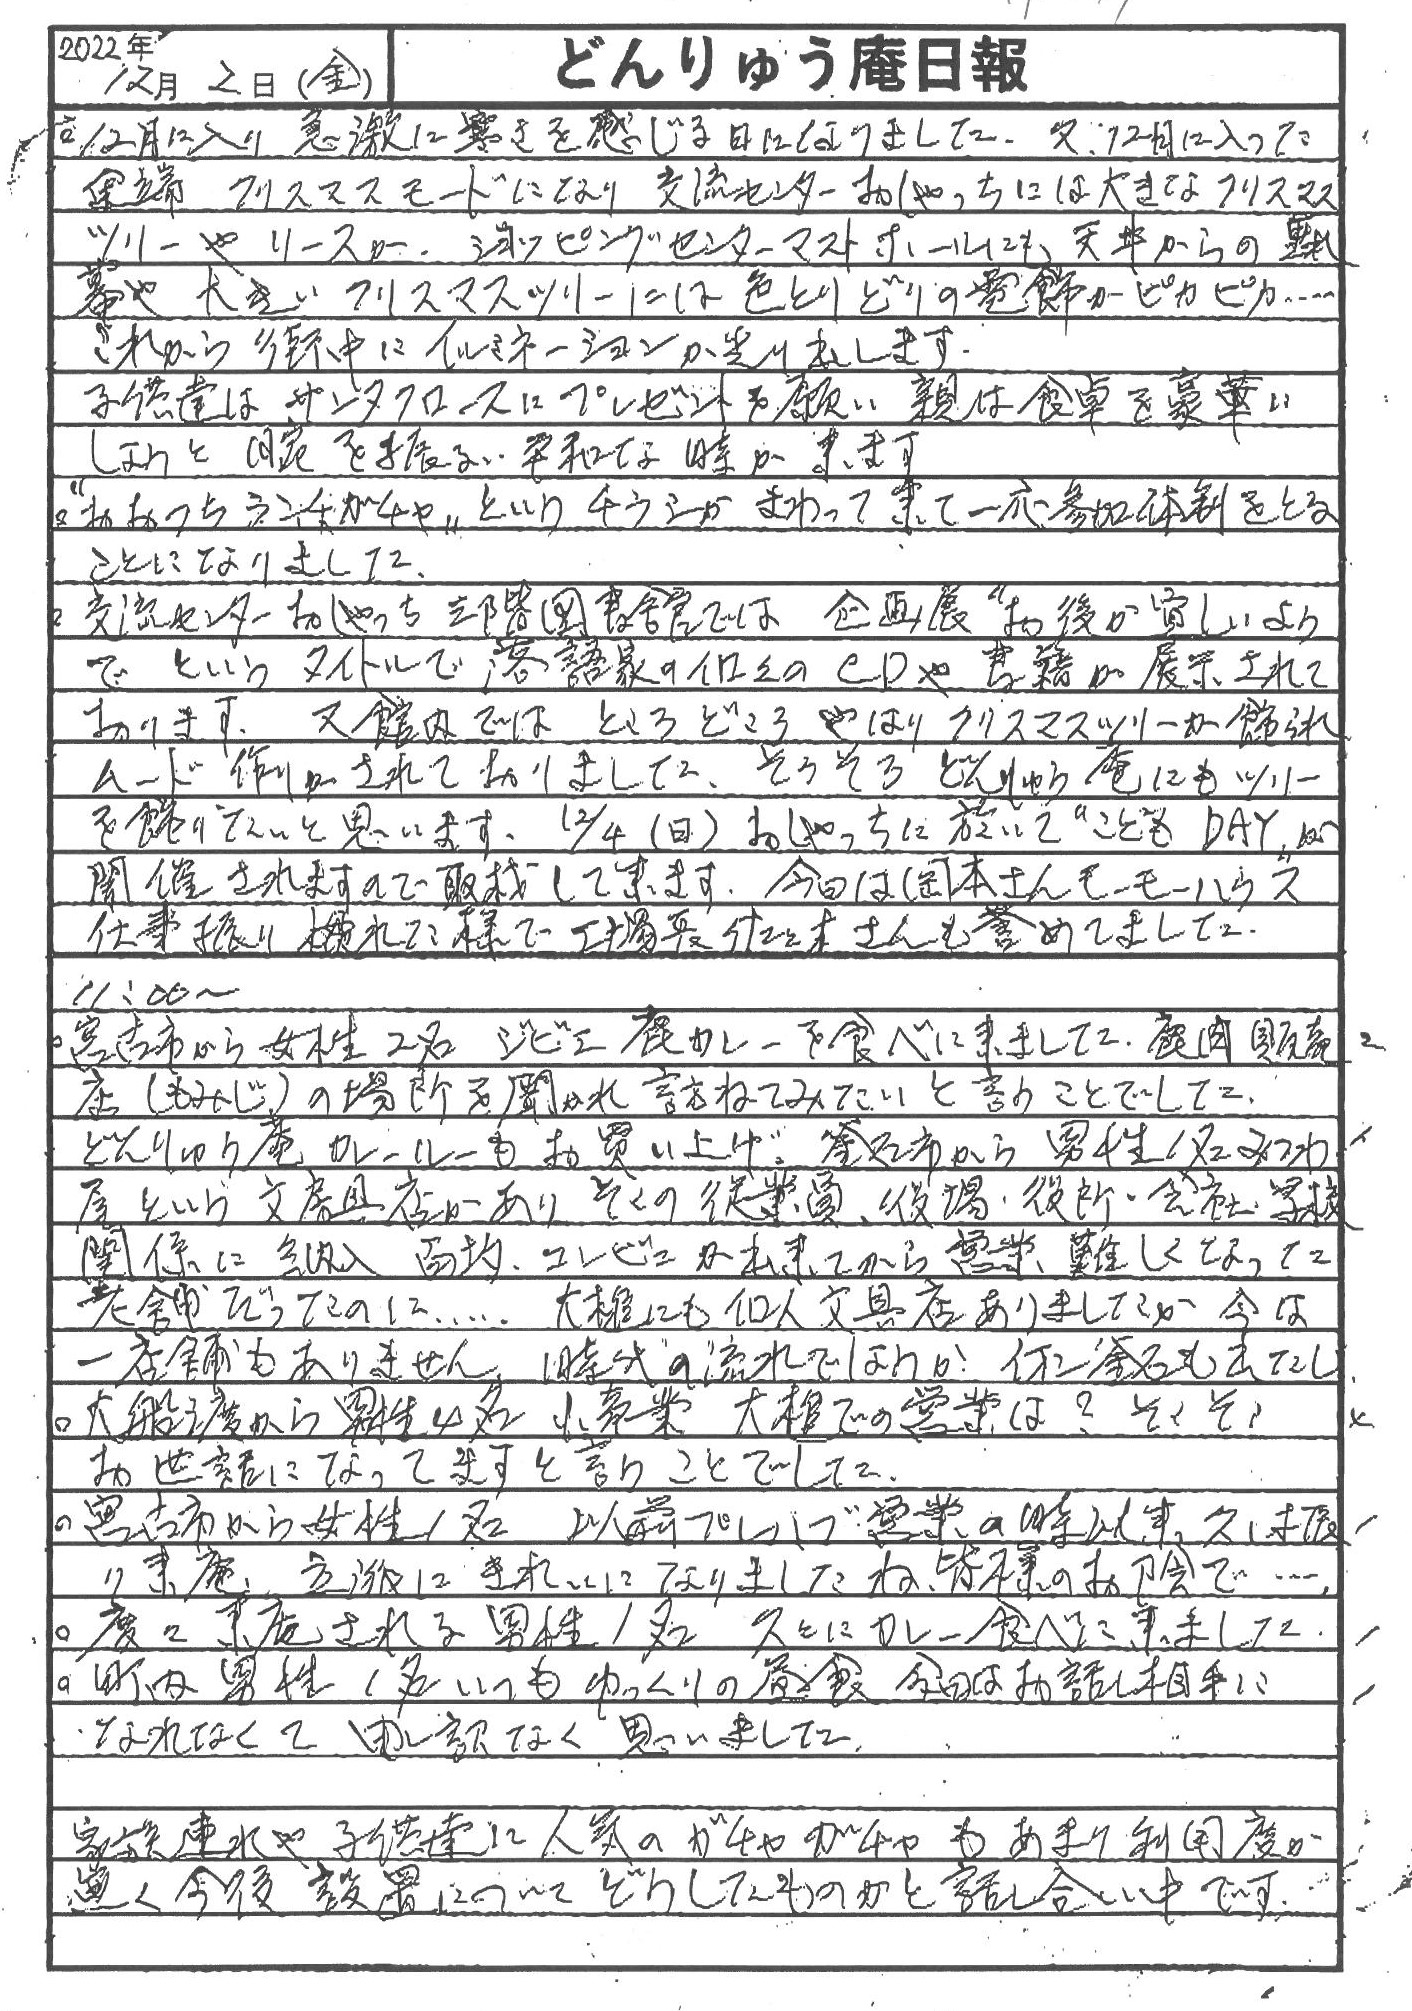 2022年
12月 2日(金)
どんりゅう庵日報
12月に入り 急激に寒さを感じる日になりました。又、12月に入った
途端 クリスマスモードになり 交流センターおしゃっちには大きなクリスマス
ツリーや リースが、ショッピングセンターマストホールにも、天井からの垂れ
幕や 大きい クリスマスツリーには 色とりどりの電飾がピカピカ……
これから 街中に イルミネーションが光り出します。
子供達は サンタクロースに プレゼントを願い 親は 食卓を豪華に
しようと 腕を振るい 平和な 時が 来ます
"おおつちランチガチャ"という チラシが まわって来て一応参加体制をとる
ことになりました。
交流センターおしゃっち 三階図書館では 企画展"お後が宜しいよう
で という タイトルで 落語家の CDや 書籍が 展示されて
おります。 又館内では ところどころ やはり クリスマスツリーが飾られ
ムード作りがされて おりました。 そろそろ どんりゅう庵にもツリー
を飾りたいと思います。 12/4(日) おしゃっちに於いて"こども DAY"が
開催されますので 取材して来ます。 今日は岡本さんモーモーハウス
仕事振り 慣れた様で 工場長 佐々木さんも誉めてました。
11:00~
宮古市から女性 2名 ジビエ 鹿カレーを食べに来ました。鹿肉販売 2
店(もみじ)の場所を聞かれ 訪ねてみたいと言うことでした。
どんりゅう庵 カレールーも お買い上げ。 釜石市から 男性1名
屋という 文房具店があり そこの従業員、役場・役所・会社・学校
関係に 納入 コンビニが出来てから営業、難しくなった
老舗だったのに…… 大槌にも 文具店ありましたが 今は
一店舗もありません。時代の流れでしょうか? 釜石も
大船渡から男性4名 事業 大槌での営業は? そこそこ
お世話になってますと言うことでした。
宮古市から女性1名 以前プレハブ営業の時以来、久し振
り来庵、立派に きれいになりましたね、皆様のお陰で…
度々 来庵される 男性1名 カレー食べに来ました。
町内 男性 1名 いつも ゆっくりの昼食 今日はお話し相手に
なれなくて 申し訳なく 思いました。
家族連れや 子供達に人気の ガチャガチャも あまり利用度が
悪く 今後 設置について どうしたものかと 話し合い中です。